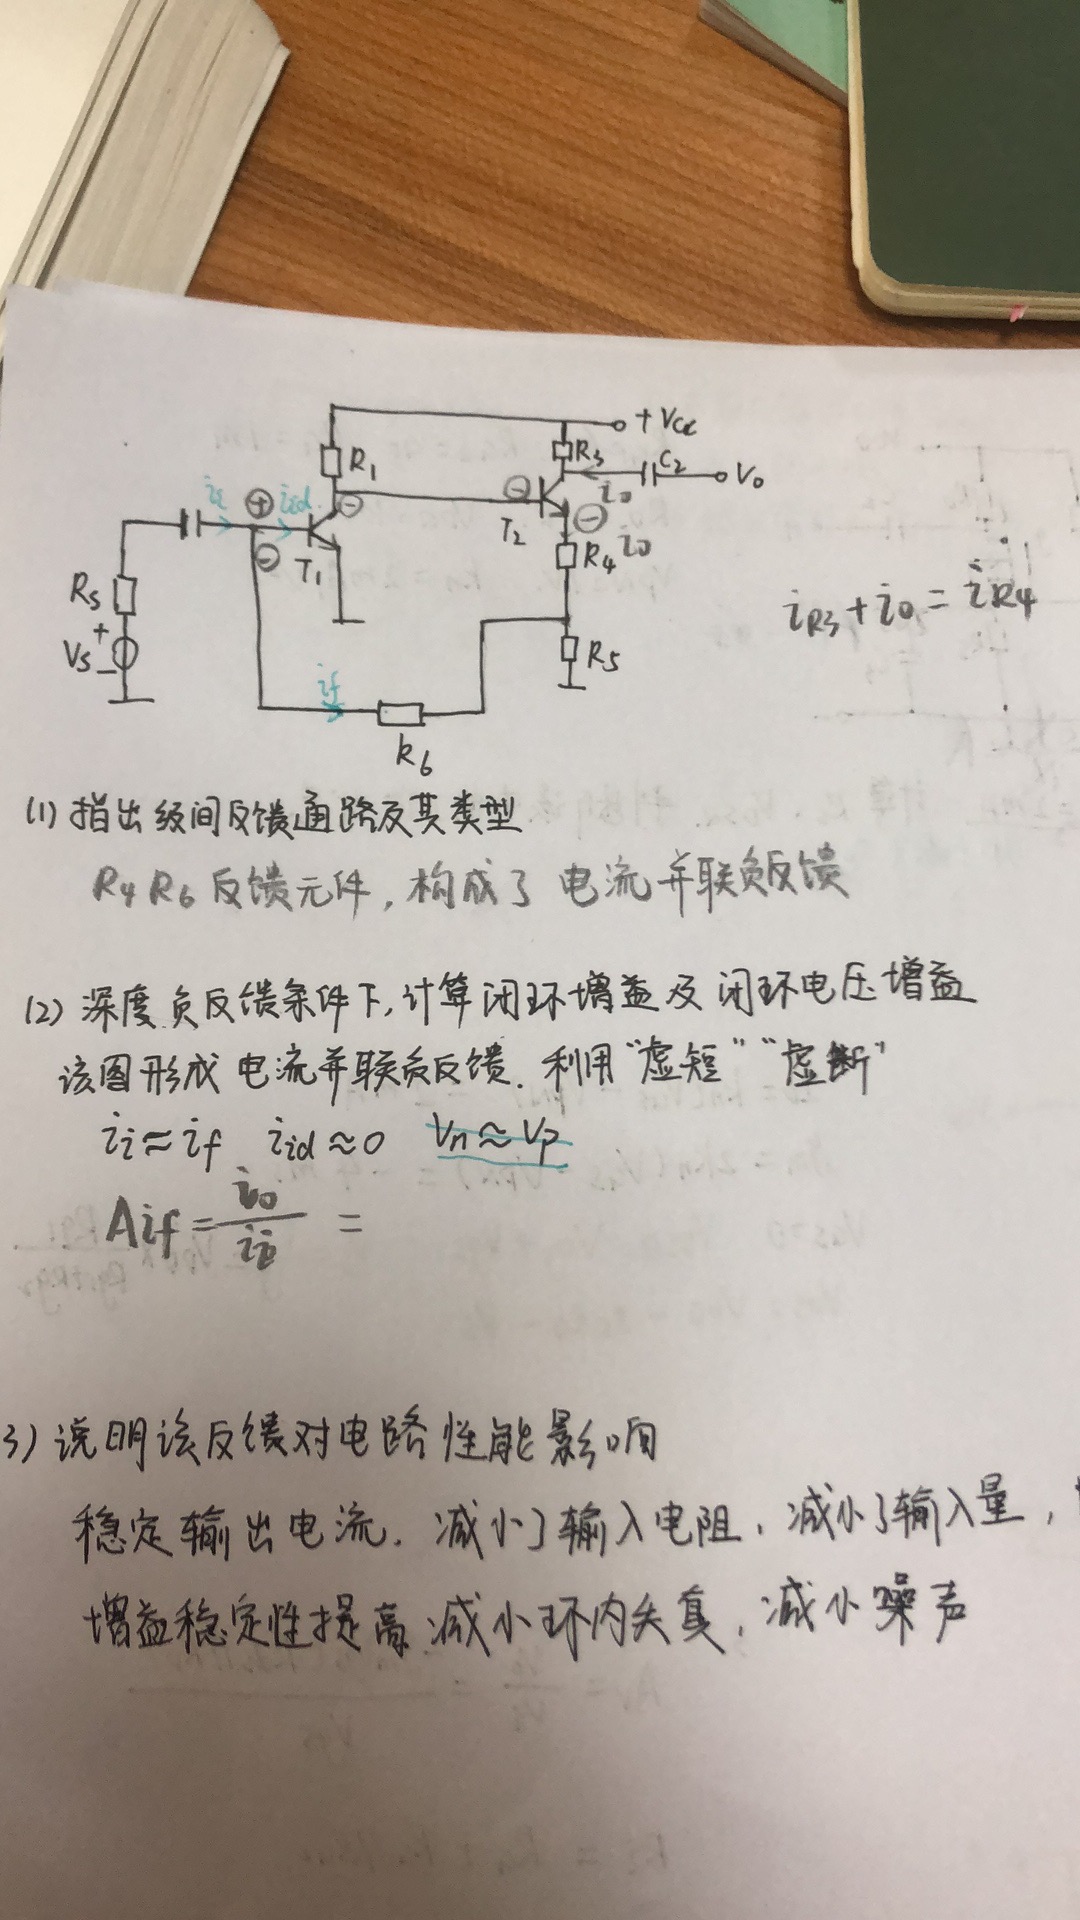 +Vcc
R1
R3
C2
Vo
ii
⊕
iid
⊖
⊖
io
T2
⊖
⊖
T1
R4
io
Rs
Vs
+
-
R5
if
R6
iR3+io=iR4
(1) 指出级间反馈通路及其类型
R4 R6 反馈元件,构成了 电流并联负反馈
(2) 深度负反馈条件下,计算闭环增益及闭环电压增益
该图形成 电流并联负反馈. 利用"虚短""虚断"
ii≈if iid≈0 Vn≈Vp
Aif=io/ii=
3) 说明该反馈对电路性能影响
稳定输出电流. 减小了输入电阻, 减小了输入量,
增益稳定性提高 减小环内失真, 减小噪声